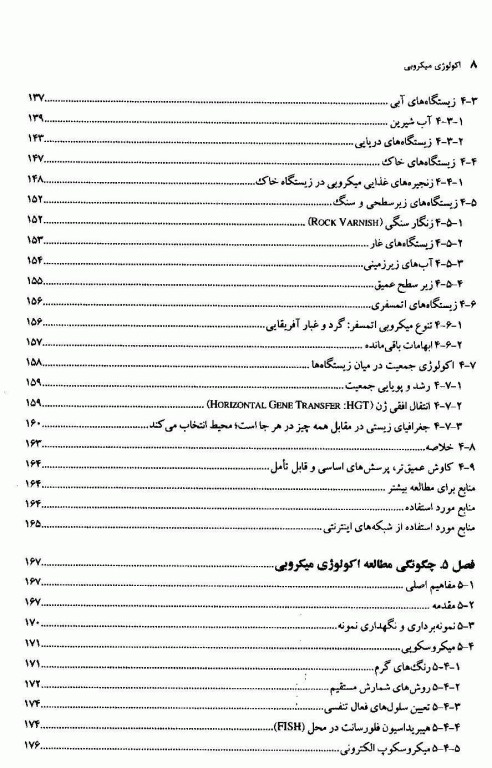 ۸ اکولوژی میکروبی
۴-۳ زیستگاه‌های آبی ۱۳۷
۴-۳-۱ آب شیرین ۱۳۹
۴-۳-۲ زیستگاه‌های دریایی ۱۴۳
۴-۴ زیستگاه‌های خاک ۱۴۷
۴-۴-۱ زنجیره‌های غذایی میکروبی در زیستگاه خاک ۱۴۸
۴-۵ زیستگاه‌های زیرسطحی و سنگ ۱۵۲
۴-۵-۱ زنگار سنگی (ROCK VARNISH) ۱۵۲
۴-۵-۲ زیستگاه‌های غار ۱۵۳
۴-۵-۳ آب‌های زیرزمینی ۱۵۴
۴-۵-۴ زیر سطح عمیق ۱۵۵
۴-۶ زیستگاه‌های اتمسفری ۱۵۶
۴-۶-۱ تنوع میکروبی اتمسفر: گرد و غبار آفریقایی ۱۵۶
۴-۶-۲ ابهامات باقی‌مانده ۱۵۷
۴-۷ اکولوژی جمعیت در میان زیستگاه‌ها ۱۵۸
۴-۷-۱ رشد و پویایی جمعیت ۱۵۹
۴-۷-۲ انتقال افقی ژن (HORIZONTAL GENE TRANSFER :HGT) ۱۵۹
۴-۷-۳ جغرافیای زیستی در مقابل همه چیز در هر جا است؛ محیط انتخاب می‌کند ۱۶۰
۴-۸ خلاصه ۱۶۳
۴-۹ کاوش عمیق‌تر، پرسش‌های اساسی و قابل تأمل ۱۶۴
منابع برای مطالعه بیشتر ۱۶۴
منابع مورد استفاده ۱۶۴
منابع مورد استفاده از شبکه‌های اینترنتی ۱۶۵
فصل ۵. چگونگی مطالعه اکولوژی میکروبی ۱۶۷
۵-۱ مفاهیم اصلی ۱۶۷
۵-۲ مقدمه ۱۶۷
۵-۳ نمونه‌برداری و نگهداری نمونه ۱۷۰
۵-۴ میکروسکوپی ۱۷۱
۵-۴-۱ رنگ‌های گرم ۱۷۱
۵-۴-۲ روش‌های شمارش مستقیم ۱۷۲
۵-۴-۳ تعیین سلول‌های فعال تنفسی ۱۷۴
۵-۴-۴ هیبریداسیون فلورسانت در محل (FISH) ۱۷۴
۵-۴-۵ میکروسکوپ الکترونی ۱۷۶